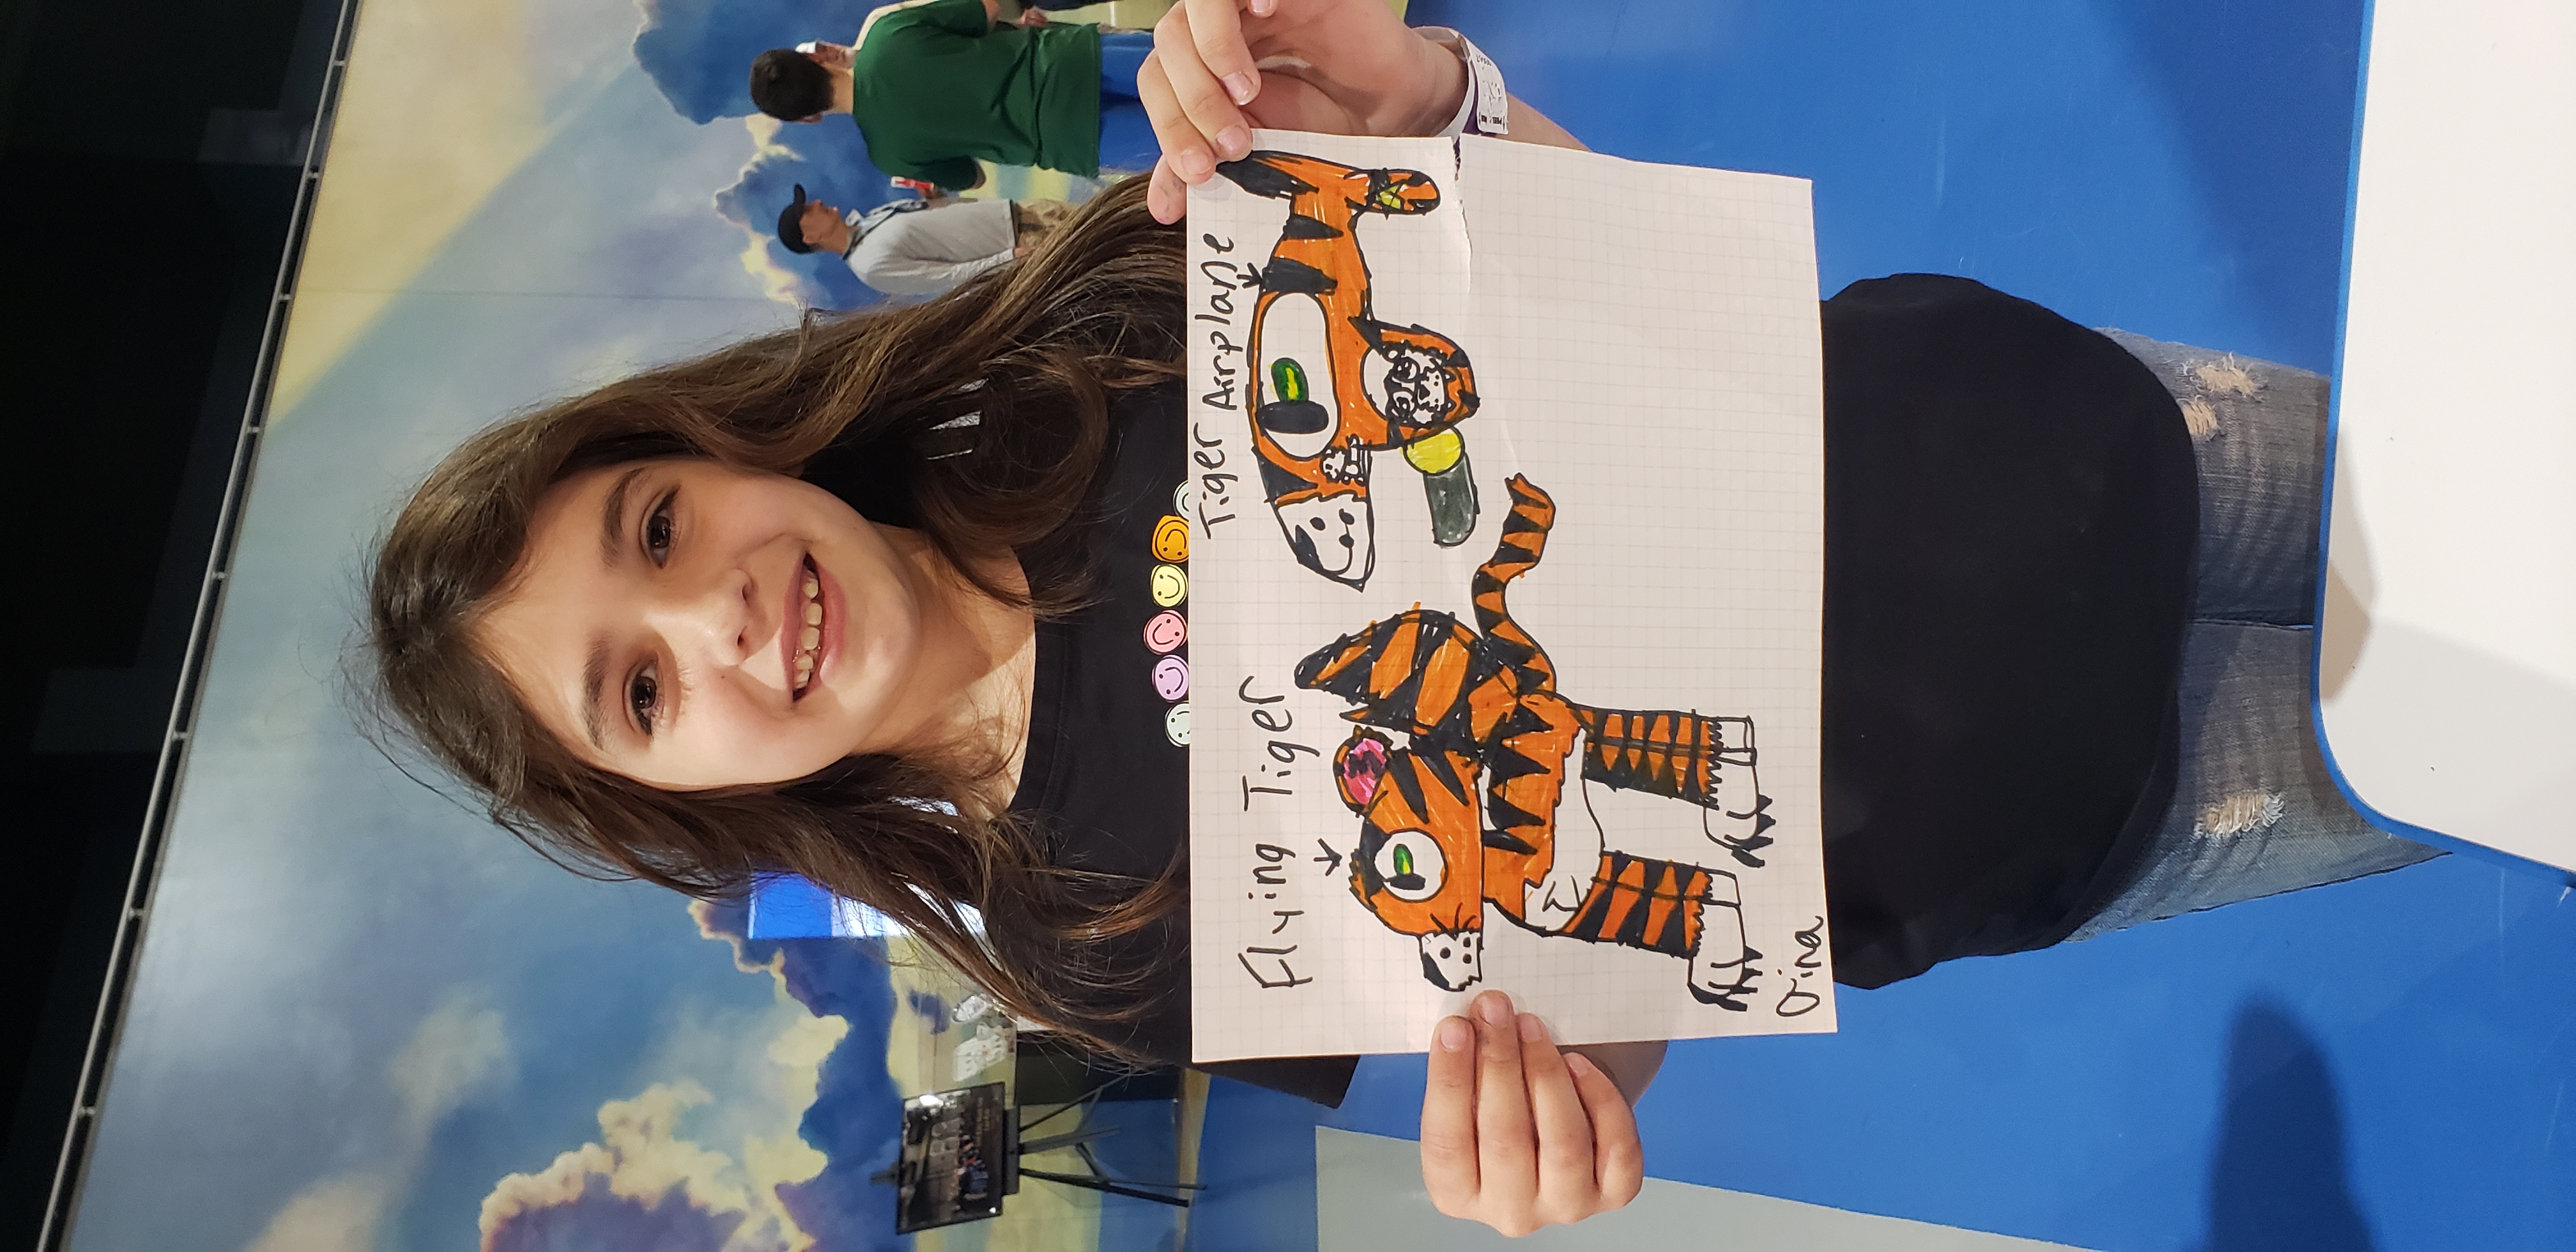 Flying Tiger
Tiger Airplane